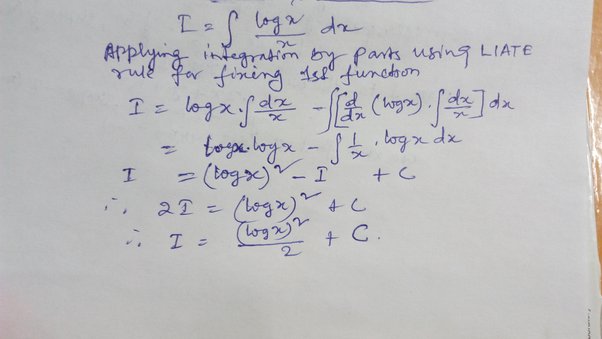 I = ∫ logx/x dx
Applying integration by parts using LIATE
rule for fixing 1st function
I = logx.∫dx/x - ∫[d/dx (logx).∫dx/x] dx
= logx.logx - ∫1/x.logx dx
I = (logx)² - I + C
∴ 2I = (logx)² + C
∴ I = (logx)²/2 + C.